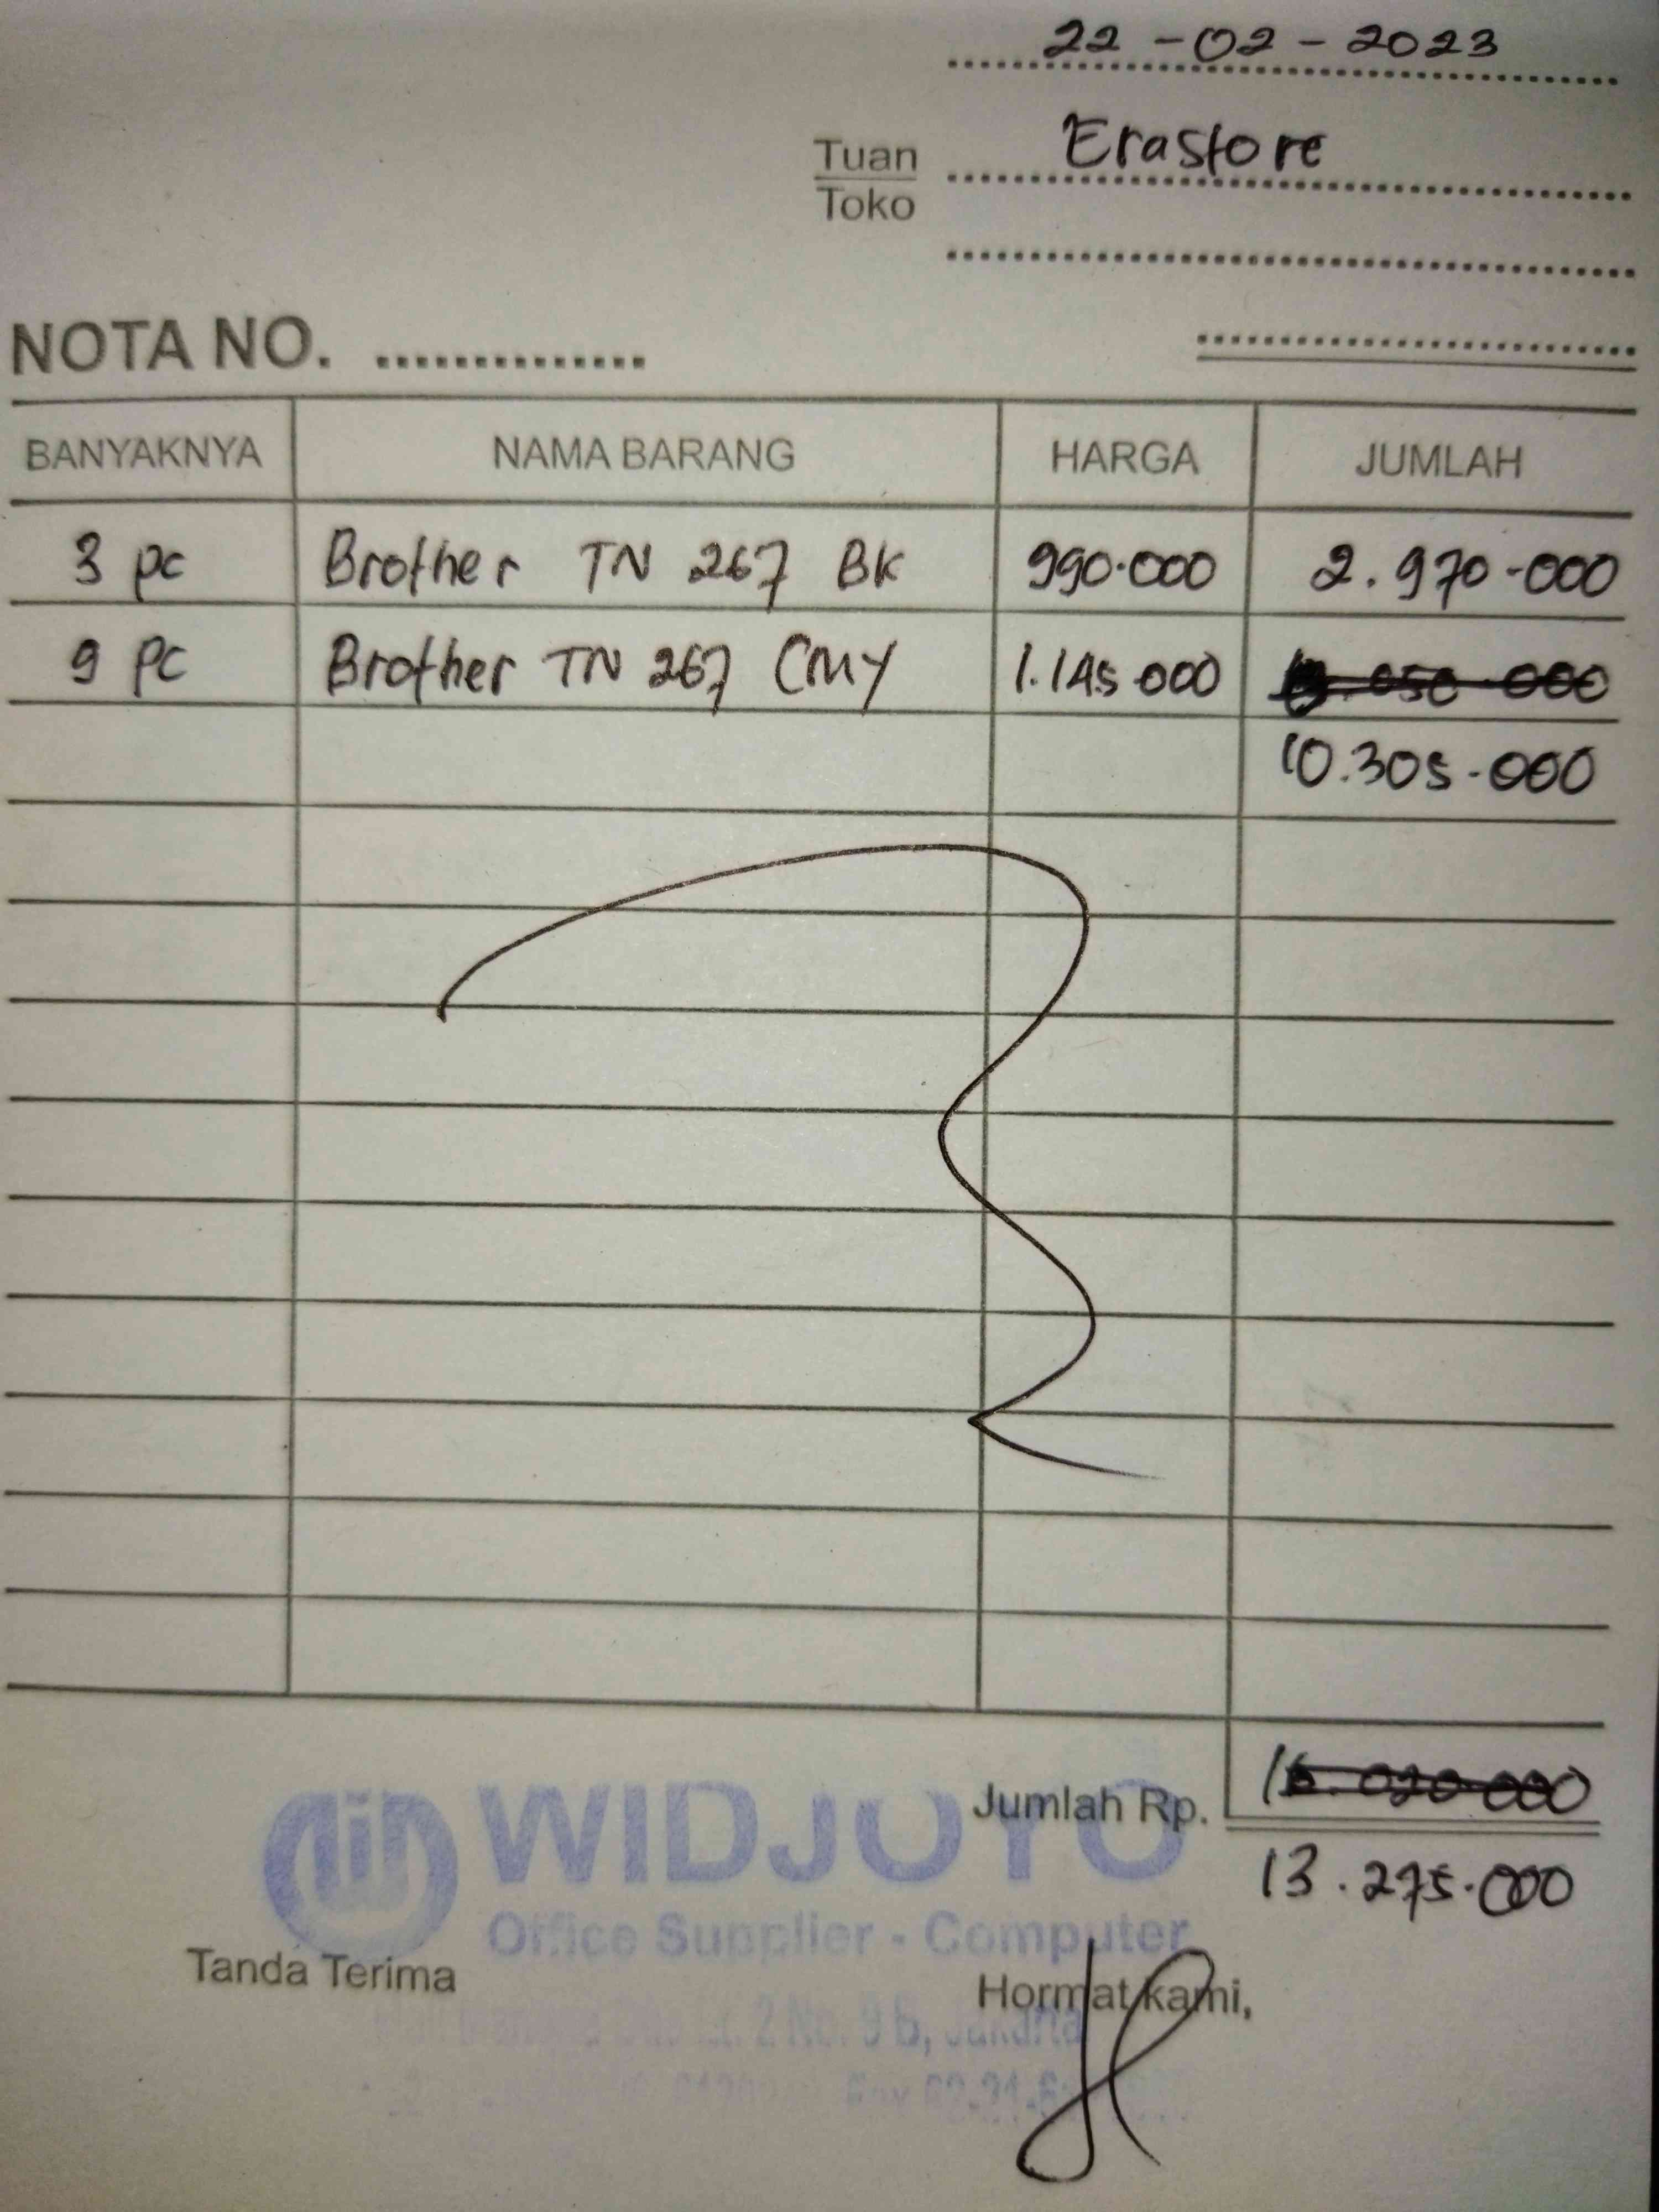 22 - 02 - 2023
Tuan Erastore
Toko
NOTA NO. ..............
BANYAKNYA NAMA BARANG HARGA JUMLAH
3 pc Brother TN 267 BK 990.000 2.970.000
9 pc Brother TN 267 CMY 1.145.000
10.305.000
Jumlah Rp.
13.275.000
WIDJOYO
Office Supplier - Computer
Tanda Terima Hormat kami,
Lt. 2 No. 9 B, Jakarta